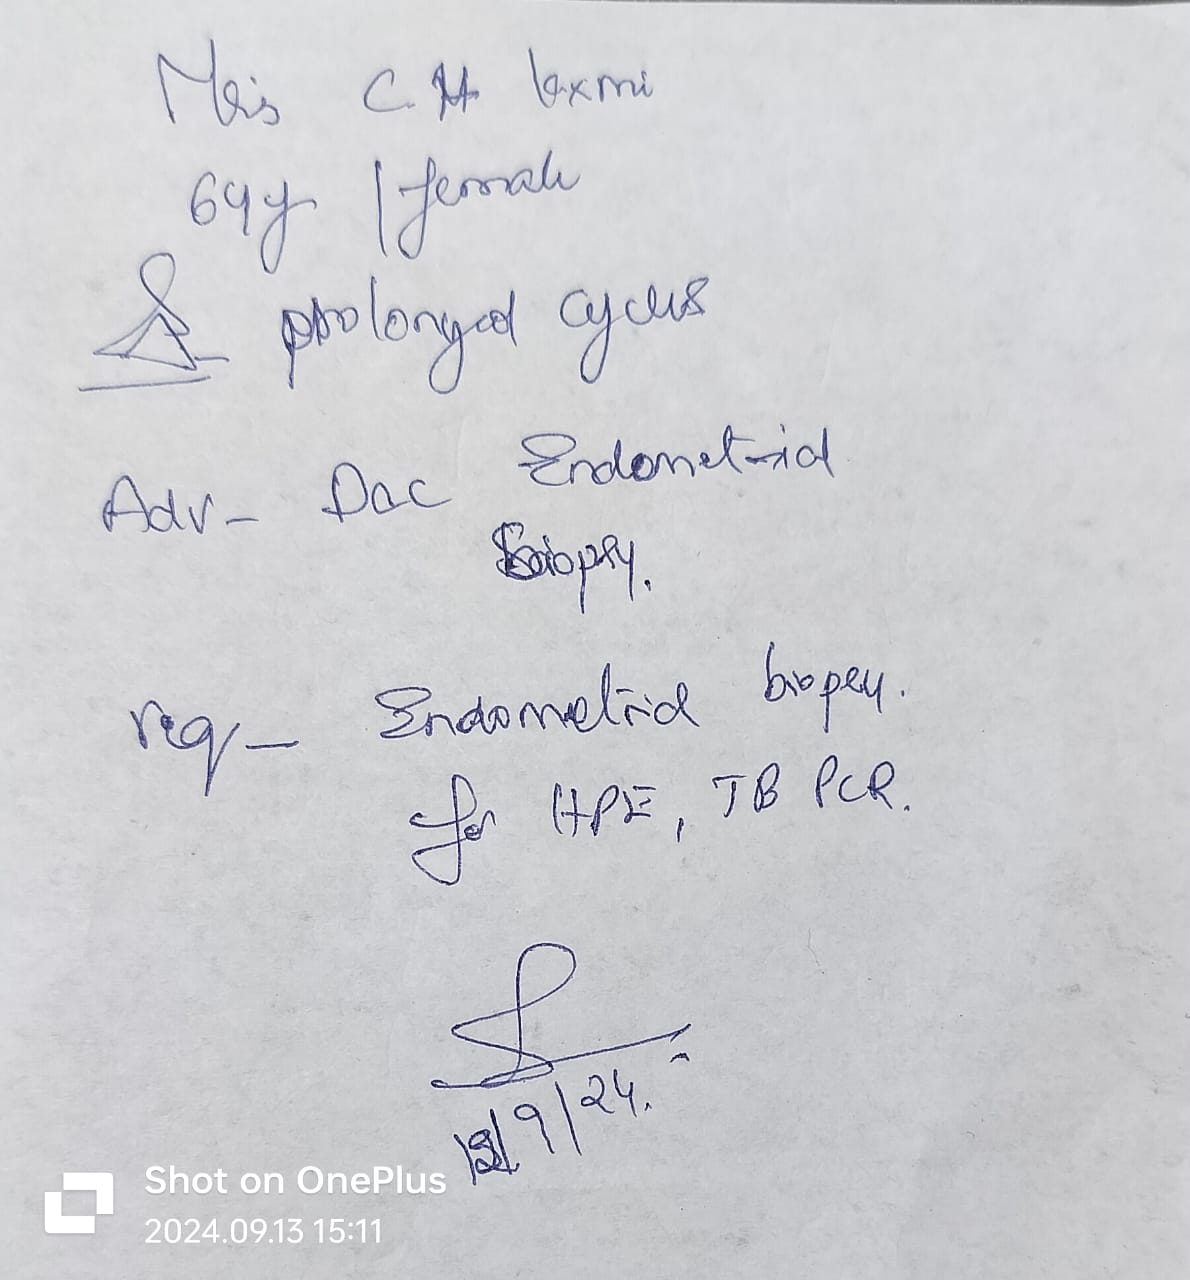 Mrs C.H laxmi
64y / female
prolonged cycles
Adv - D&C Endometrial
biopsy.
req - Endometrial biopsy.
for HPE, TB PCR.
13/9/24.
Shot on OnePlus
2024.09.13 15:11